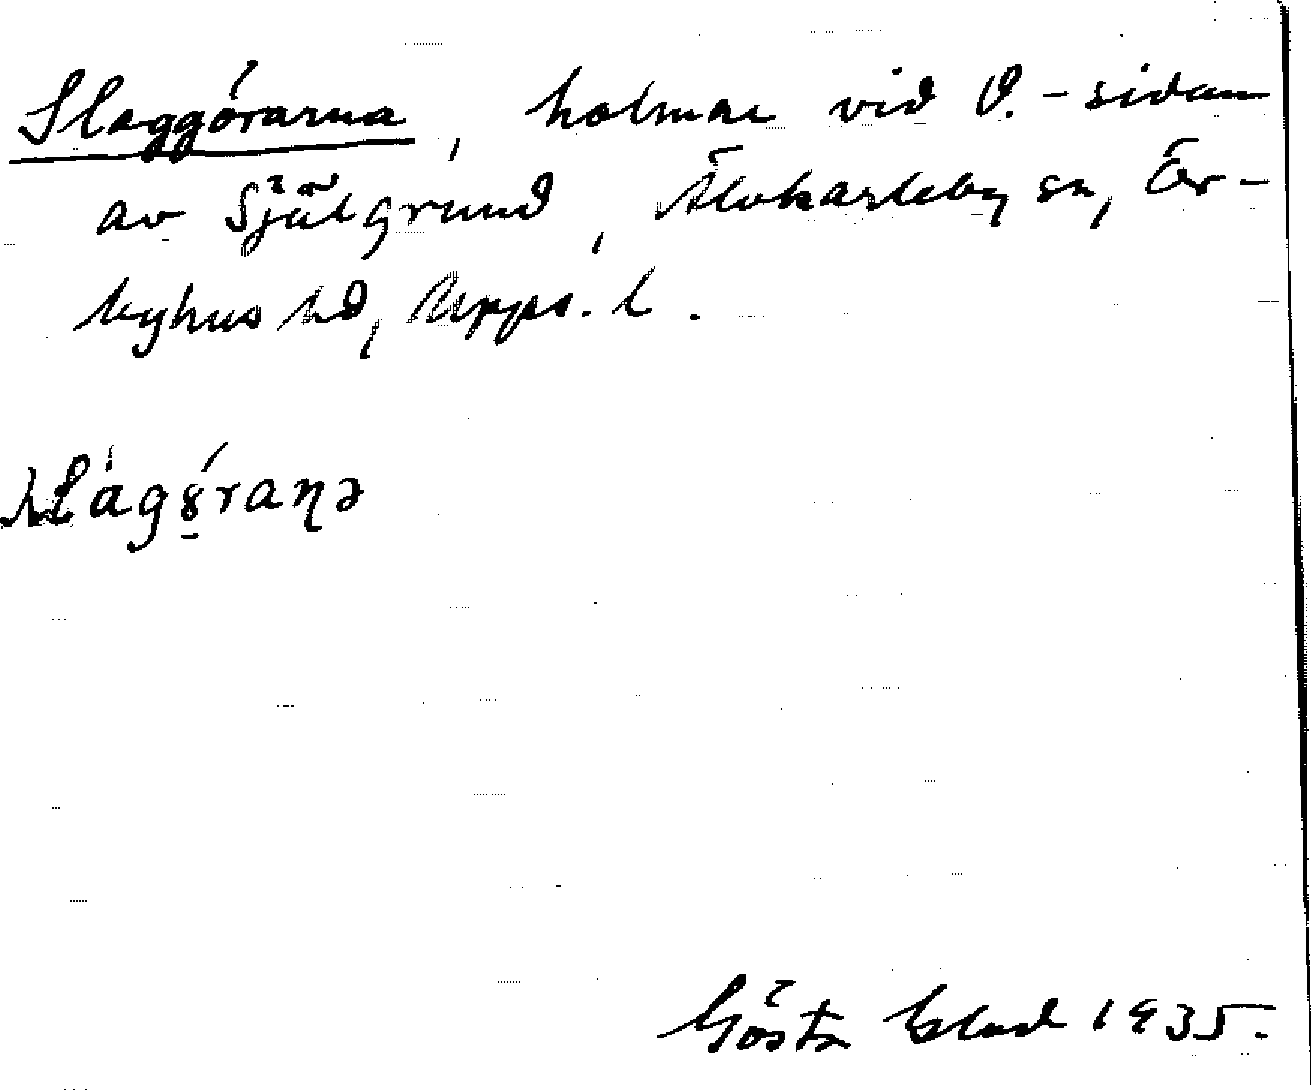 Slaggörarna, holmar vid V.-sidan
av Själgrund, Älvkarleby sn, Ör-
byhus hd, Upps. l.
Gösta Blad 1935.